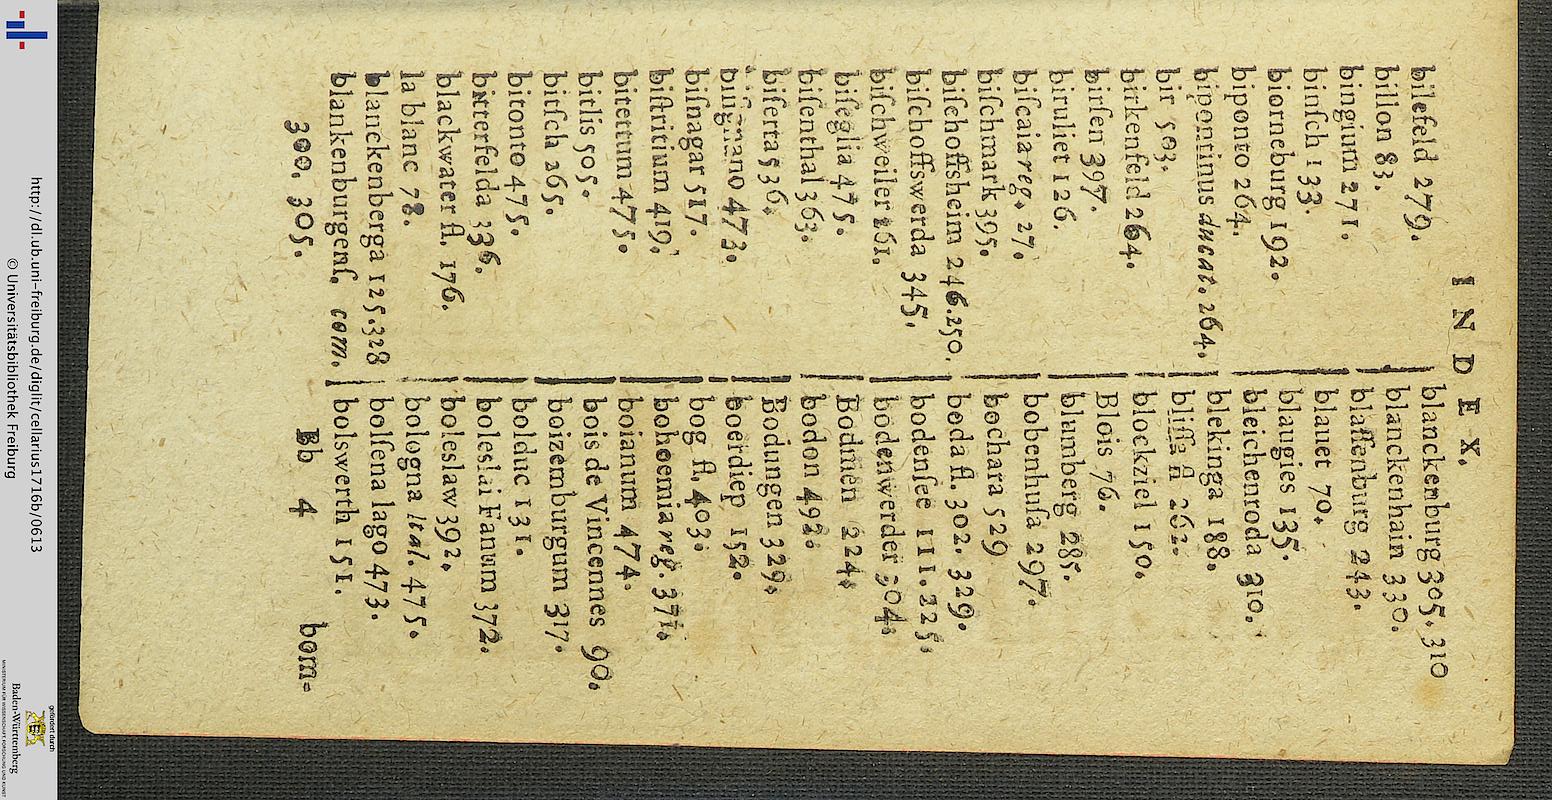 INDEX.
bilefeld 279.
billon 83.
bingium 271.
binſch 133.
biorneburg 192.
biponto 264.
bipontinus ducat. 264.
bir 503.
birkenfeld 264.
birſen 397.
biruliet 126.
biſcaia reg. 27.
biſchmark 395.
biſchoffsheim 246.250.
biſchoffswerda 345.
biſchweiler 261.
biſeglia 475.
biſenthal 363.
biſerta 536.
biſignano 473.
biſnagar 517.
biſtritium 419.
bitettum 475.
bitlis 505.
bitſch 265.
bitonto 475.
bitterfelda 336.
blackwater fl. 176.
la blanc 78.
blanckenberga 125.328
blankenburgenſ. com.
300. 305.
blanckenburg 305. 310
blanckenhain 330.
blaſſenburg 243.
blauet 70.
blaugies 135.
bleichenroda 310.
blekinga 188.
bliſſa fl 262.
blockziel 150.
Blois 76.
blumberg 285.
bobenhuſa 297.
bochara 529
boda fl. 302. 329.
bodenſee 111.225.
bodenwerder 304.
Bodmen 224.
bodon 492.
Bodungen 329.
boerdiep 152.
bog fl. 403.
bohoemia reg. 371.
boianum 474.
bois de Vincennes 90.
boizemburgum 317.
bolduc 131.
boleslai Fanum 372.
boleslaw 392.
bologna Ital. 475.
bolſena lago 473.
bolswerth 151.
Bb 4 bom-
http://dl.ub.uni-freiburg.de/diglit/cellarius1716b/0613
© Universitätsbibliothek Freiburg
gefördert durch
Baden-Württemberg
MINISTERIUM FÜR WISSENSCHAFT, FORSCHUNG UND KUNST